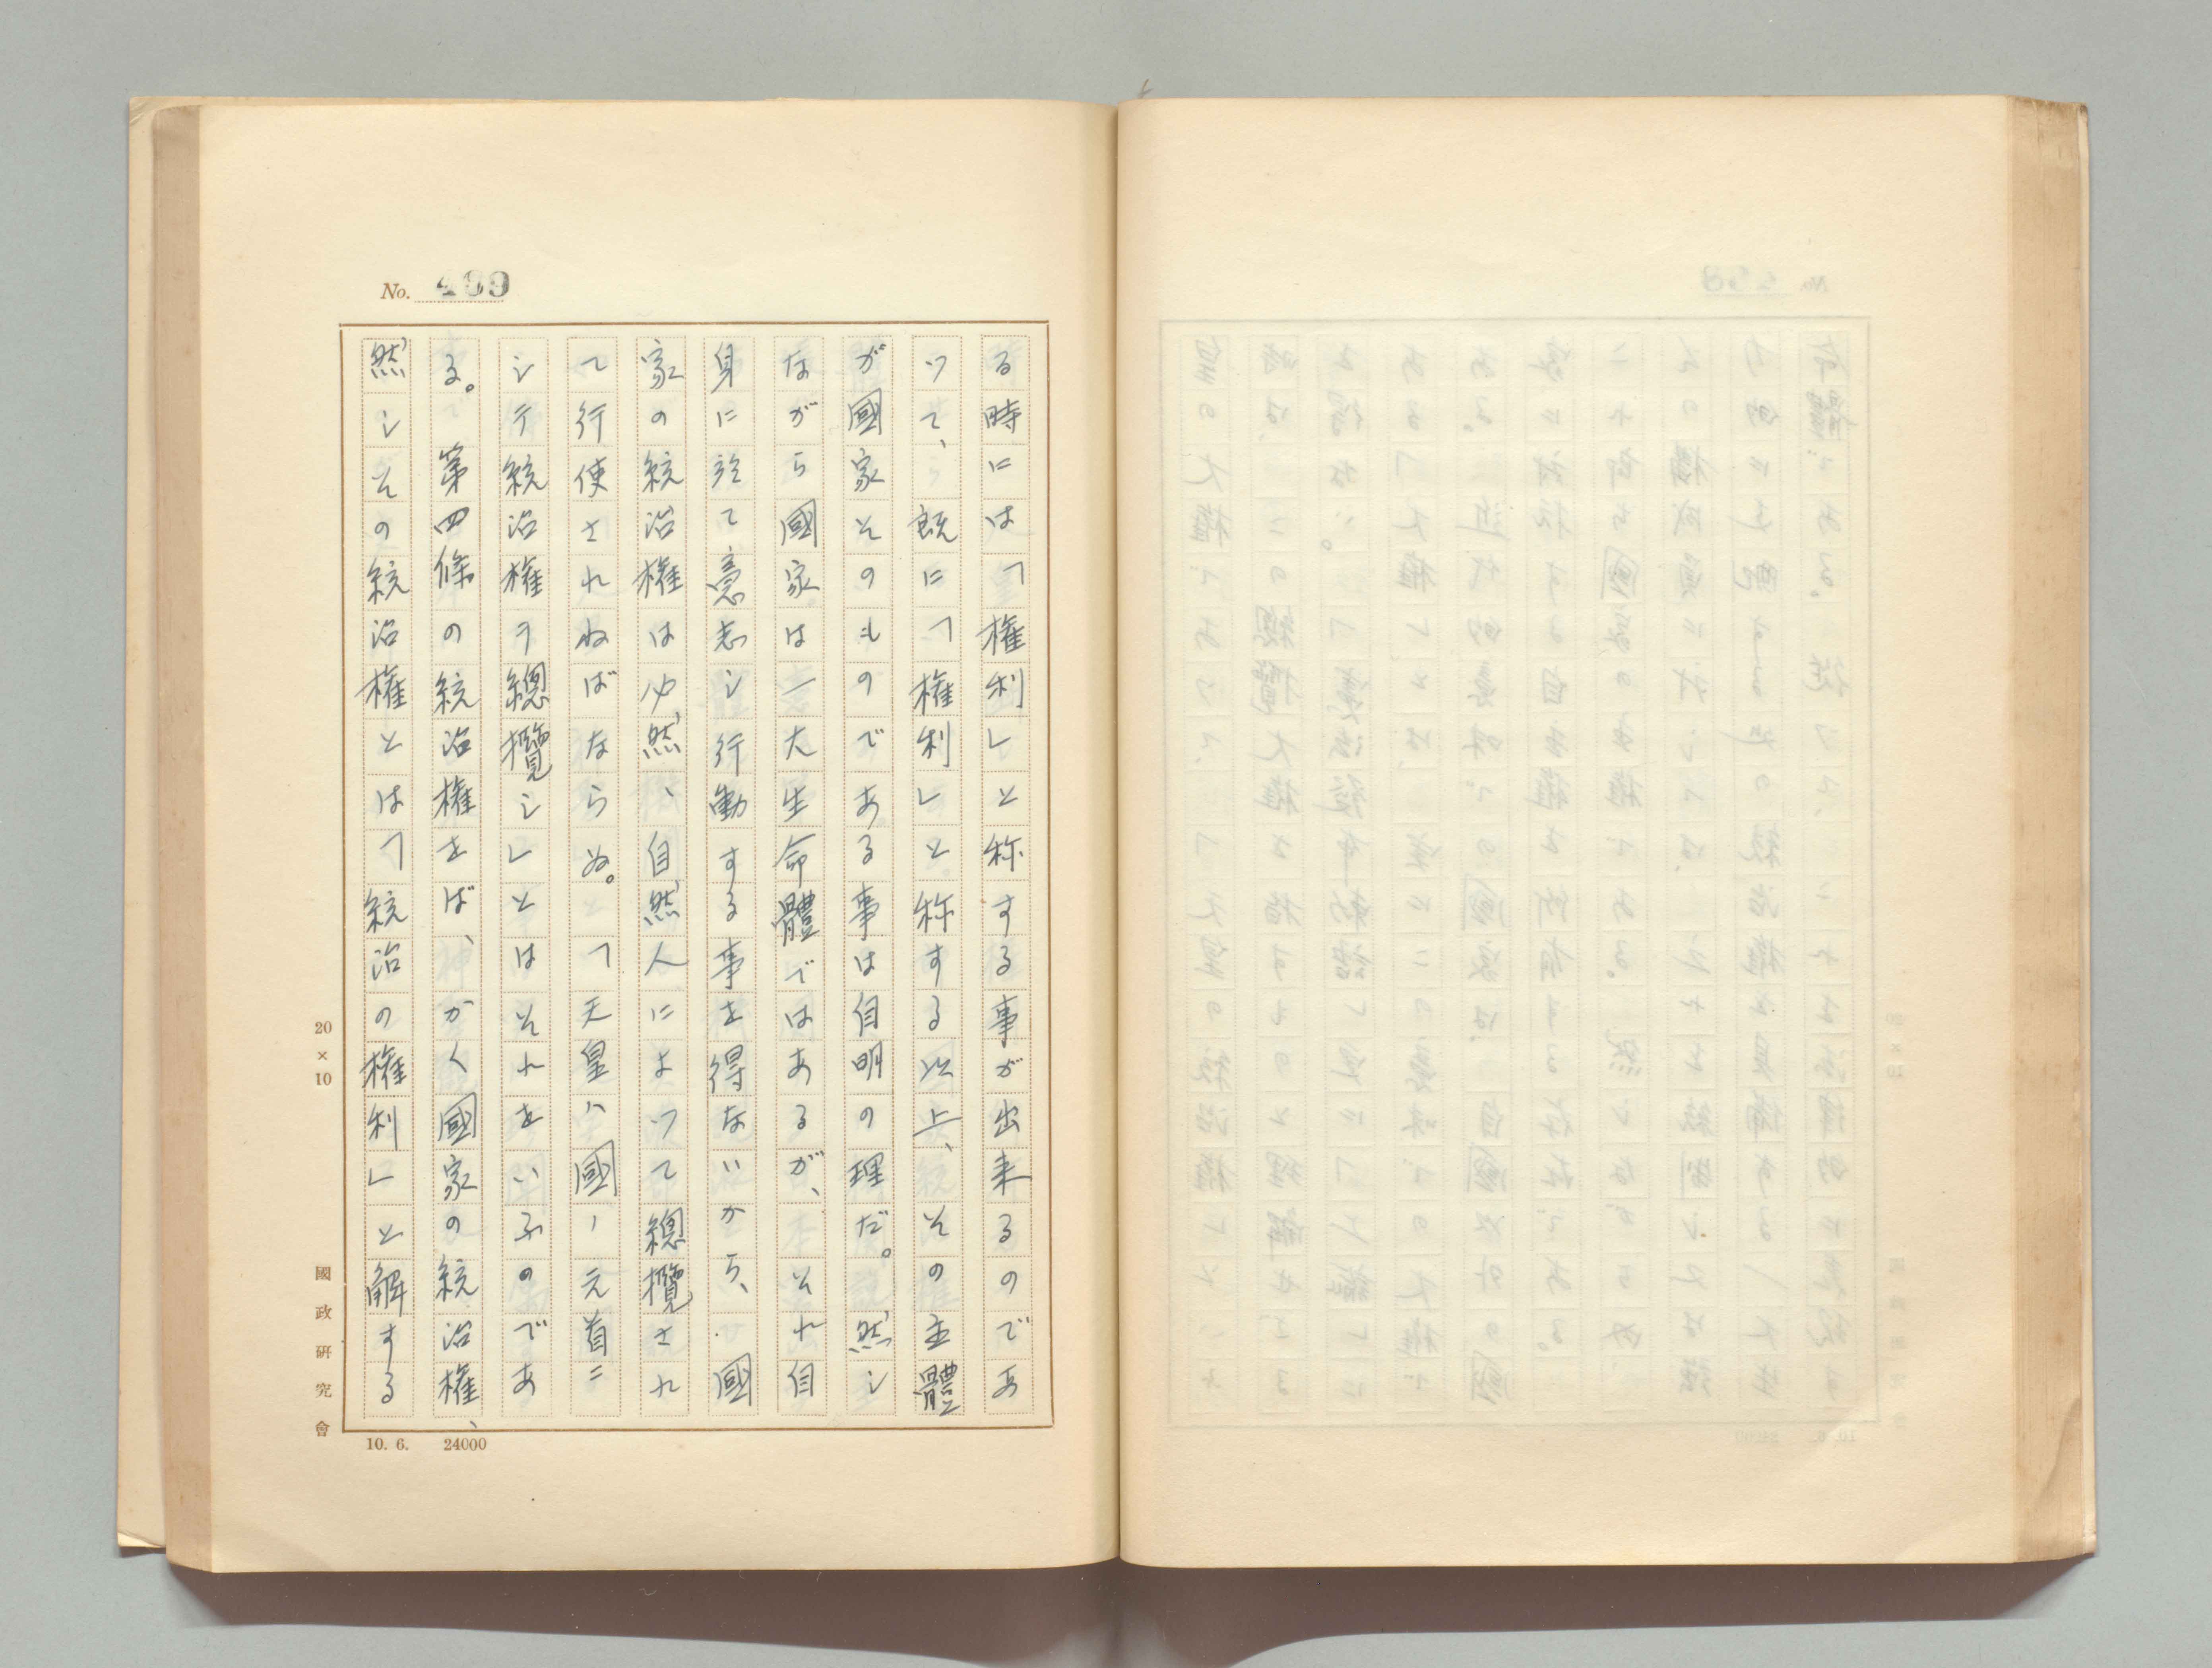 No. 409
る時には「権利」と称する事が出来るのであ
つて、既に「権利」と称する以上、その主體
が國家そのものである事は自明の理だ。然し
ながら國家は一大生命體ではあるが、それ自
身に於て意志し行動する事を得ないから、國
家の統治権は必然、自然人によつて總攬され
て行使されねばならぬ。「天皇ハ國ノ元首ニ
シテ統治権ヲ總攬シ」とはそれをいふのであ
る。第四條の統治権をば、かく國家の統治権、
然しその統治権とは「統治の権利」と解する
20×10
國政研究會
10. 6. 24000